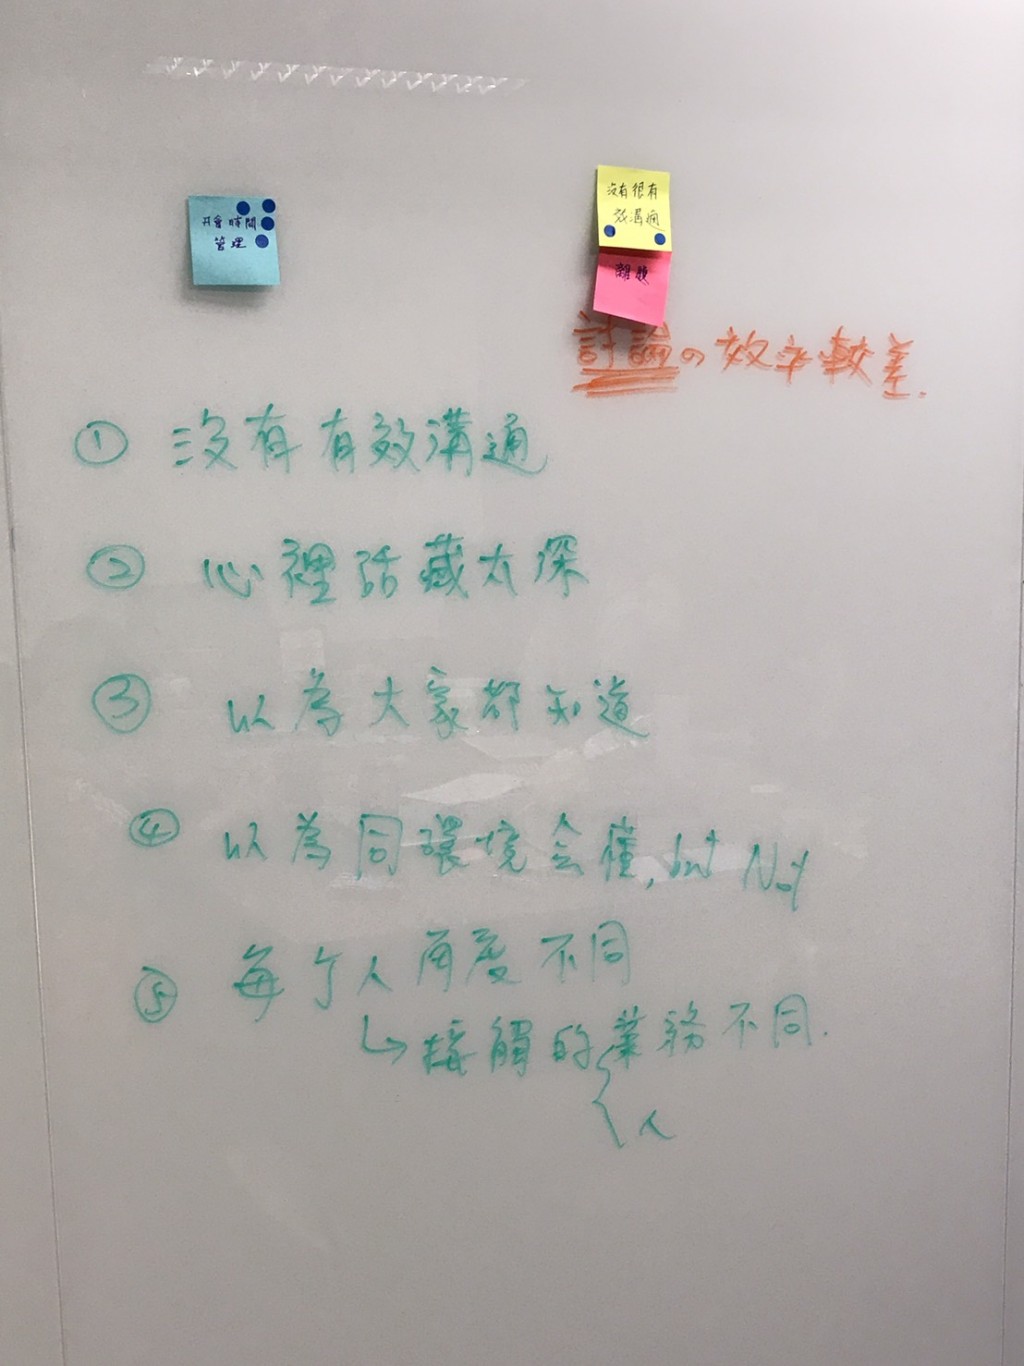 開會時間
管理
沒有很有
效溝通
討論の效率較差.
① 沒有有效溝通
② 心裡話藏太深
③ 以為大家都知道
④ 以為同環境会懂, but Not
⑤ 每个人角度不同
↳接觸的業務不同.
人